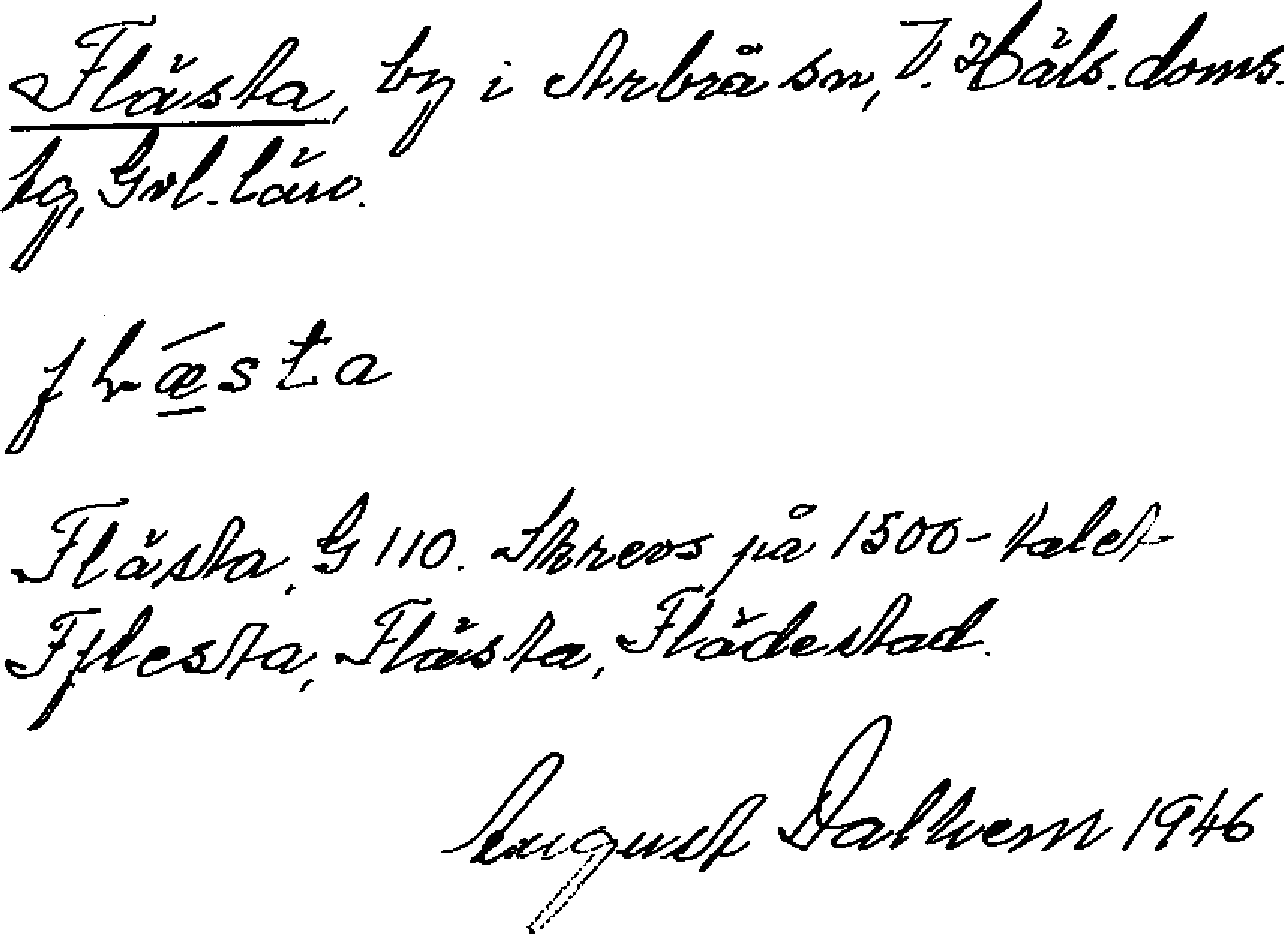 Flästa, by i Arbrå sn, V. Häls. doms.
tg, Gvl. län.
flǽ̲sta
Flästa, G 110. Skrevs på 1500-talet
Fflesta, Flästa, Flädestad.
August Dalhem 1946